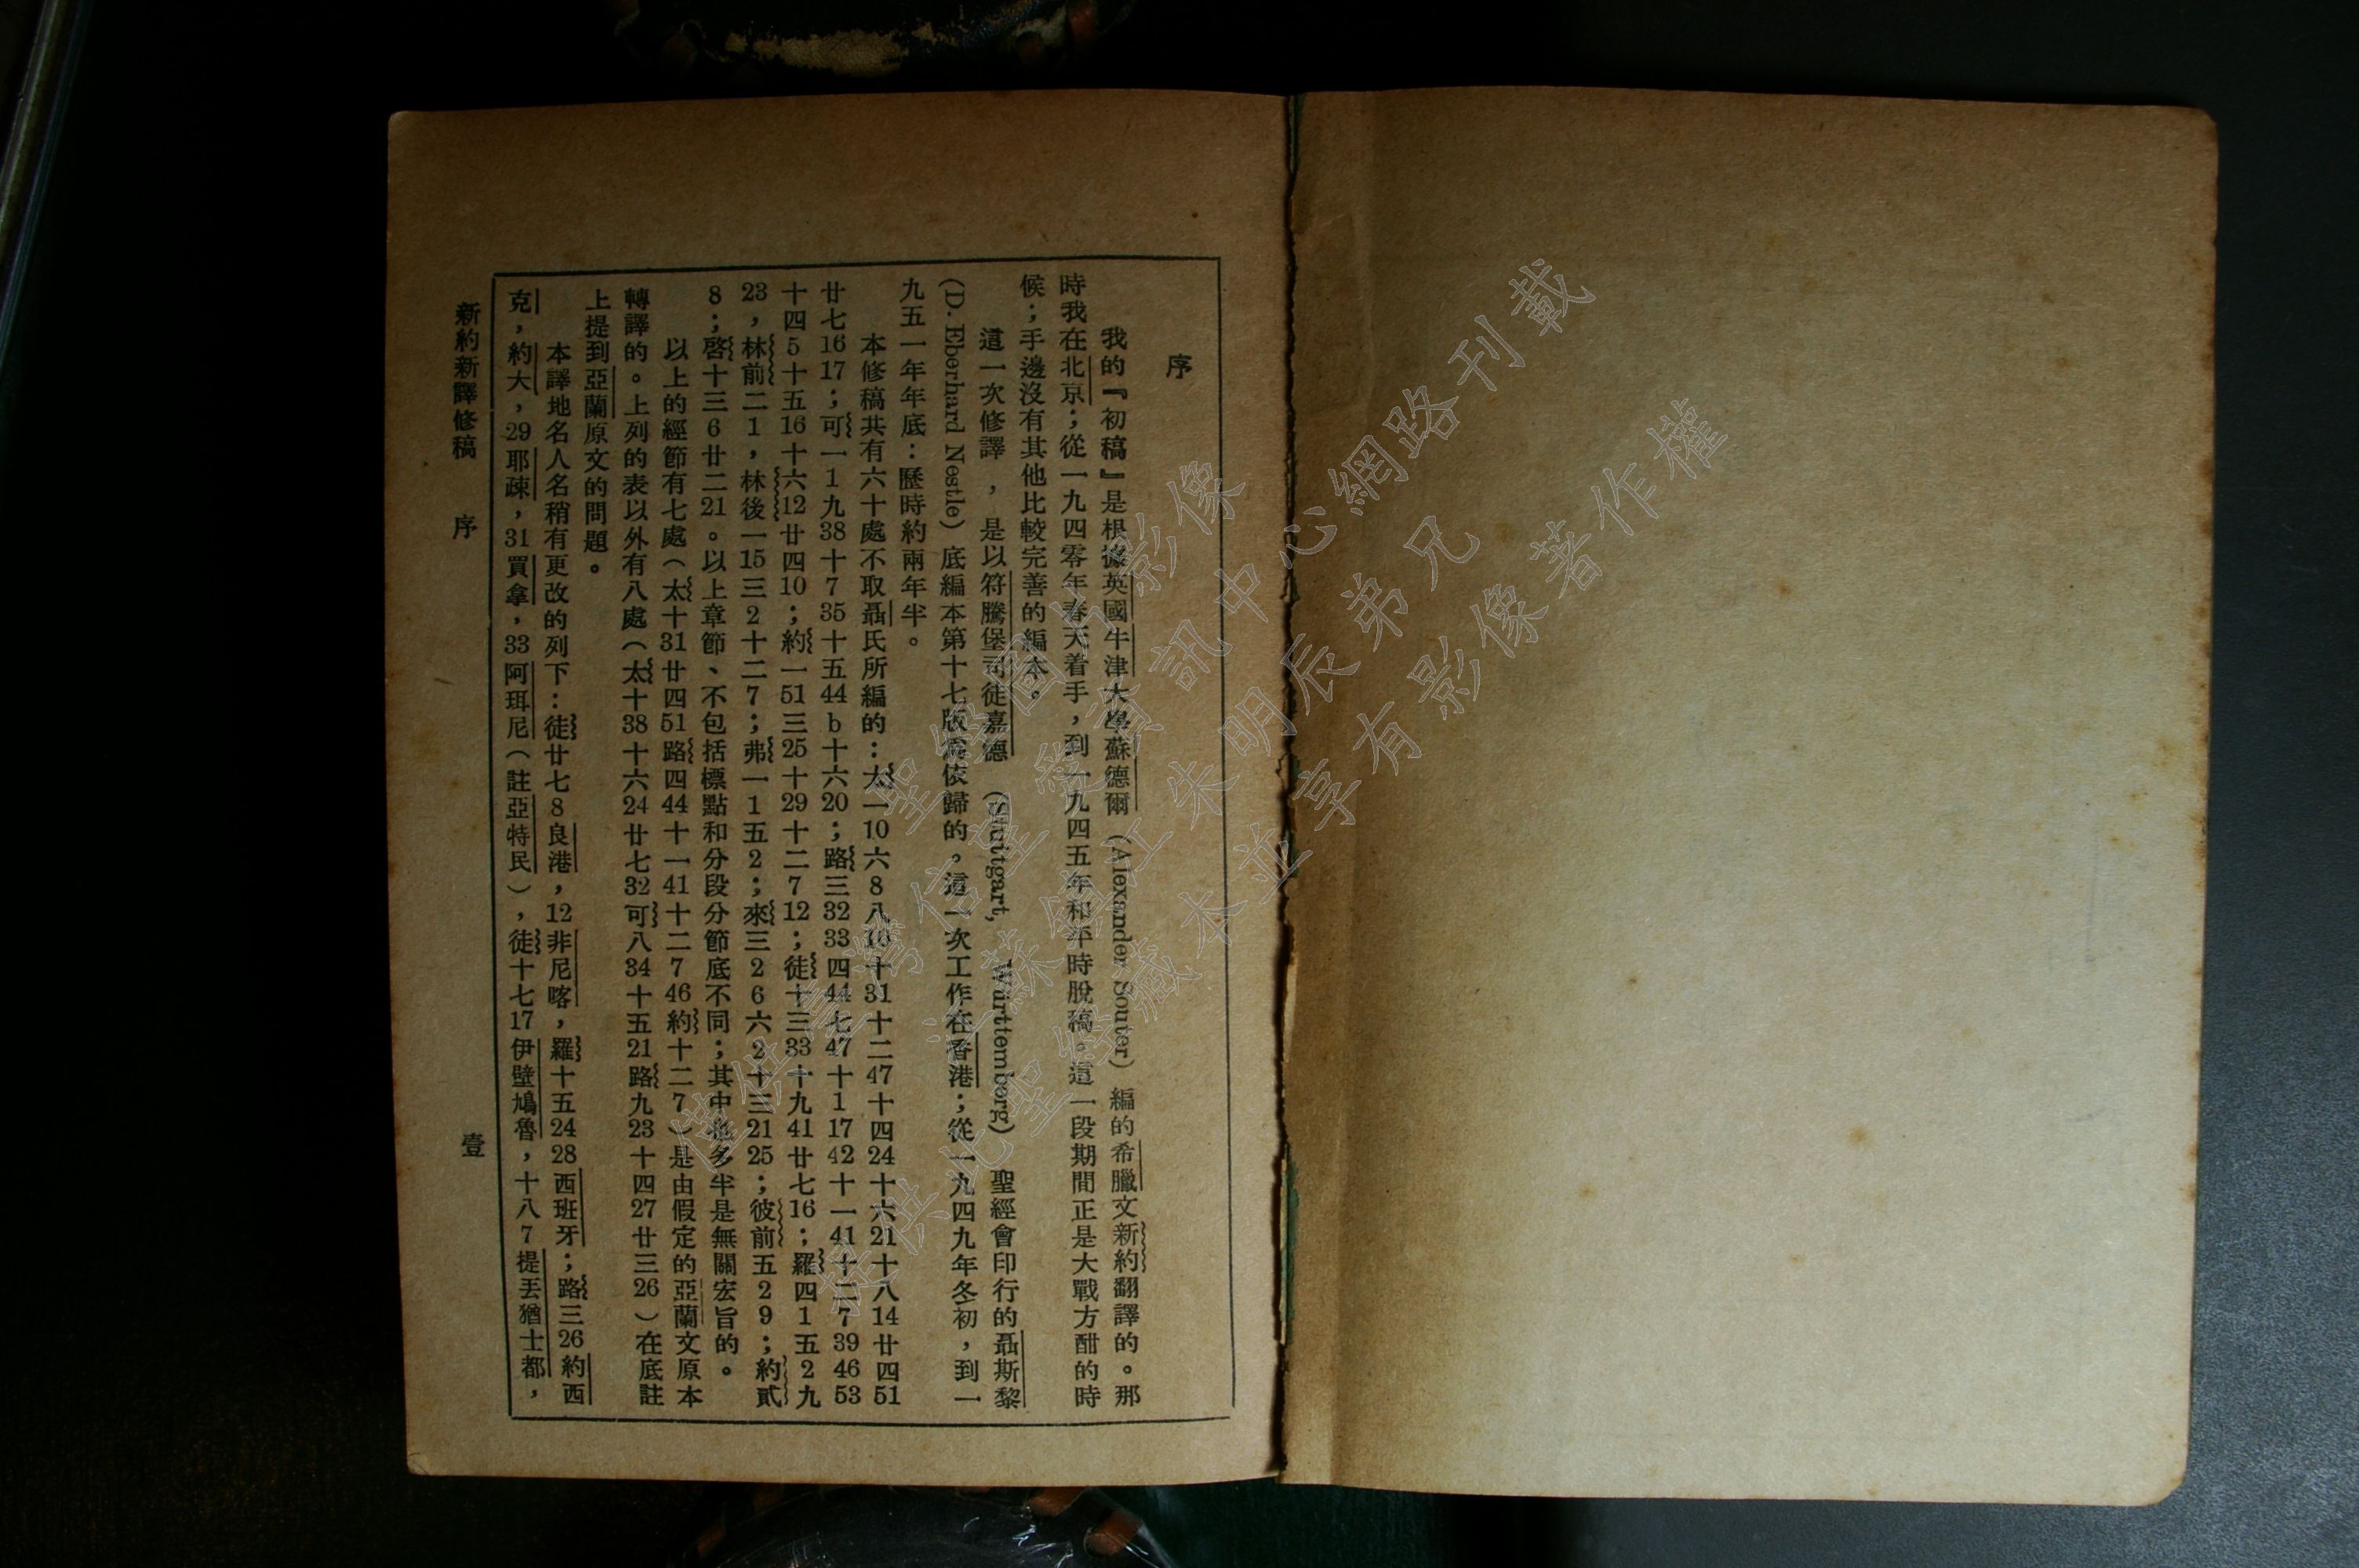 序
我的『初稿』是根據英國牛津大學蘇德爾 (Alexander Souter) 編的希臘文新約翻譯的。那
時我在北京；從一九四零年春天着手，到一九四五年和年時脫稿。這一段期間正是大戰方酣的時
候；手邊沒有其他比較完善的編本。
這一次修譯，是以符騰堡司徒嘉德 (Stuttgart, Württemberg) 聖經會印行的聶斯黎
(D. Eberhard Nestle) 底編本第十七版爲依歸的，這一次工作在香港；從一九四九年冬初，到一
九五一年年底：歷時約兩年半。
本修稿共有六十處不取聶氏所編的：太一10六8八10十31十二47十四24十六21十八14廿四51
廿七16 17；可一1九38十7 35十五44 b十六20；路三32 33四44七47十1 17 42十一41十二7 39 46 53
十四5十五16十六12廿四10；約一51三25十29十二7 12；徒十三33十九41廿七16；羅四1五2九
23，林前二1，林後一15三2十二7；弗一1五2；來三2 6六2十三21 25；彼前五2 9；約貳
8；啓十三6廿二21。以上章節、不包括標點和分段分節底不同；其中也多半是無關宏旨的。
以上的經節有七處（太十31廿四51路四44十一41十二7 46約十二7）是由假定的亞蘭文原本
轉譯的。上列的表以外有八處（太十38十六24廿七32可八34十五21路九23十四27廿三26）在底註
上提到亞蘭原文的問題。
本譯地名人名稍有更改的列下：徒廿七8良港，12非尼喀，羅十五24 28西班牙；路三26約西
克，約大，29耶疎，31買拿，33阿珥尼（註亞特民），徒十七17伊壁鳩魯，十八7提丟猶士都，
新約新譯修稿　序　壹
聖經圖片影像
僅供臺灣信望愛資訊中心網路刊載
江蘇鎮江朱明辰弟兄
提供此聖經藏本並享有影像著作權